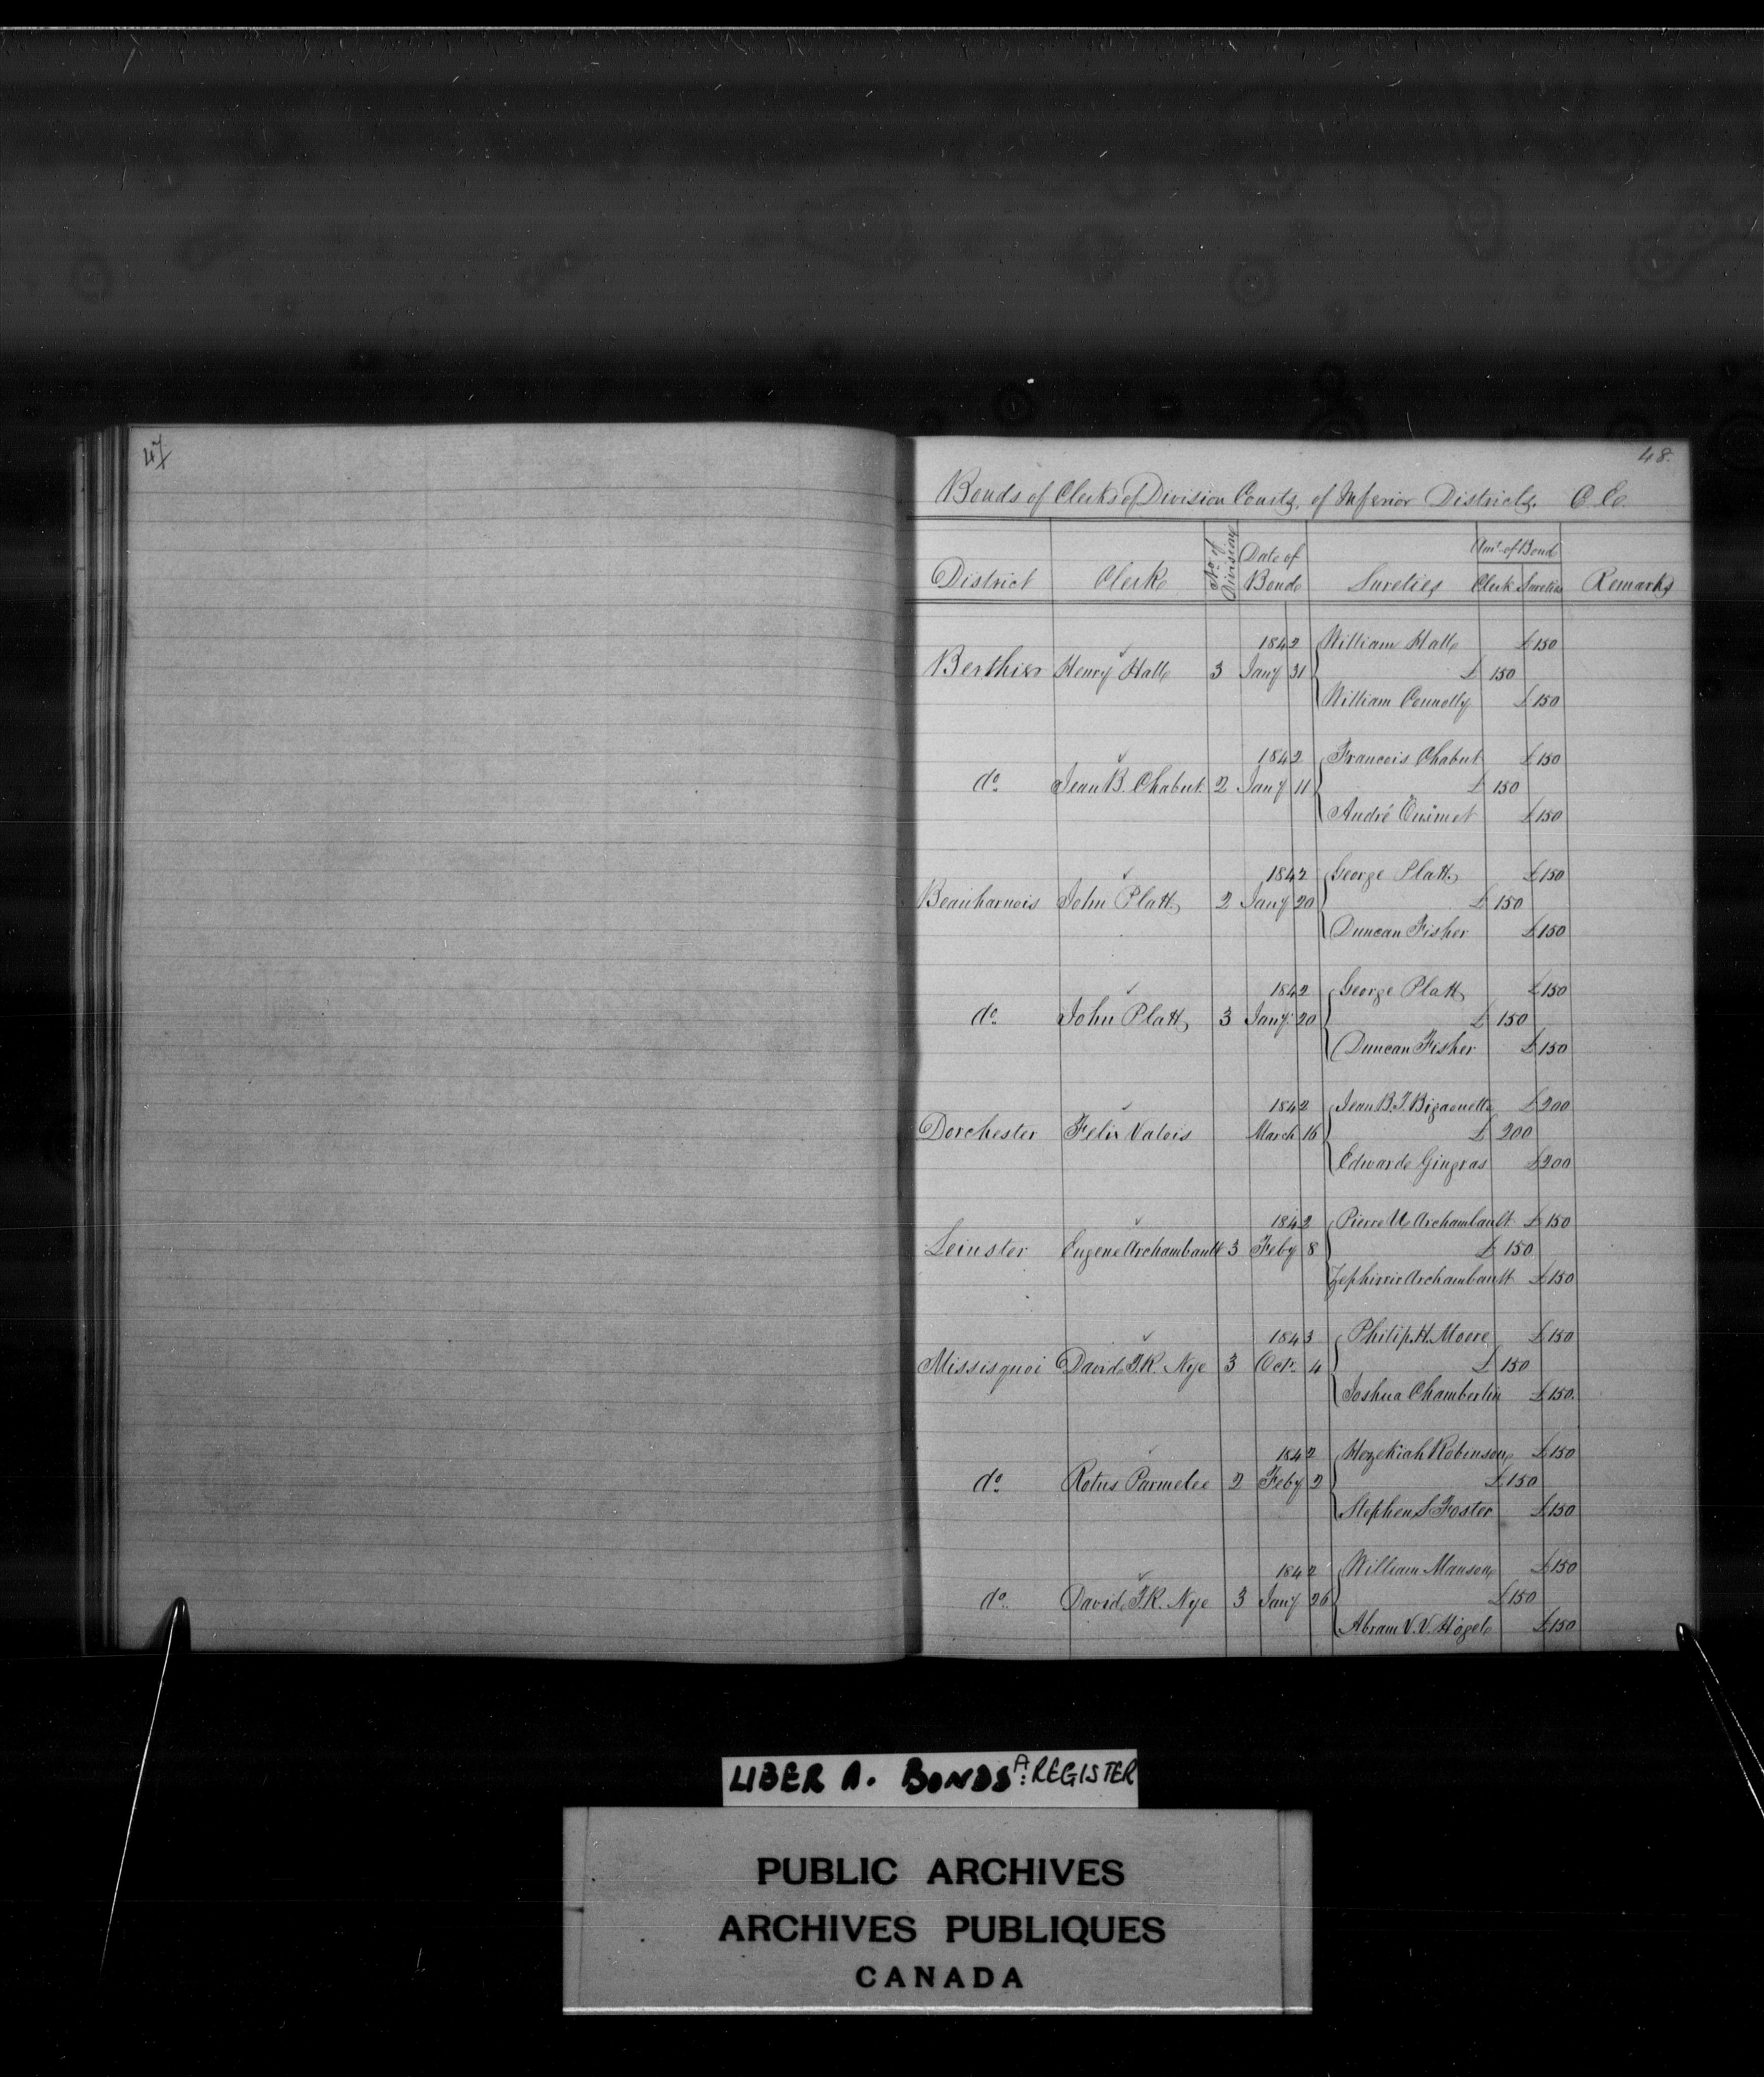 47
48.
Bonds of Clerks of Division Courts, of Inferior Districts. C.E.
District Clerk No. of Divisions Date of Bond Sureties Amt. of Bond Clerk Sureties Remarks
1842 William Hall £150
Berthier Henry Hall 3 Jany 31 £150
William Connolly £150
1842 Francois Chabut £150
do. Jean B. Chabut. 2 Jany 11 £150
André Ouimet £150
1842 George Platt £150
Beauharnois John Platt 2 Jany 20 £150
Duncan Fisher £150
1842 George Platt £150
do. John Platt 3 Jany. 20 £150
Duncan Fisher £150
1842 Jean B. T. Bigaouette £200
Dorchester Felix Valois March 16 £200
Edward Gingras £200
1842 Pierre U Archambault £150
Leinster Eugene Archambault 3 Feby 8 £150
Zephirir Archambault £150
1843 Philip. H. Moore £150
Missisquoi David T.R. Nye 3 Octr. 4 £150
Joshua Chamberlin £150.
1842 Hezekiah Robinson £150
do. Rotus Parmelee 2 Feby 2 £150
Stephen S Foster £150
1842 William Manson £150
do. David T.R. Nye 3 Jany 26 £150
Abram V.V. Hogel £150
LIBER A. BONDS A: REGISTER
PUBLIC ARCHIVES
ARCHIVES PUBLIQUES
CANADA